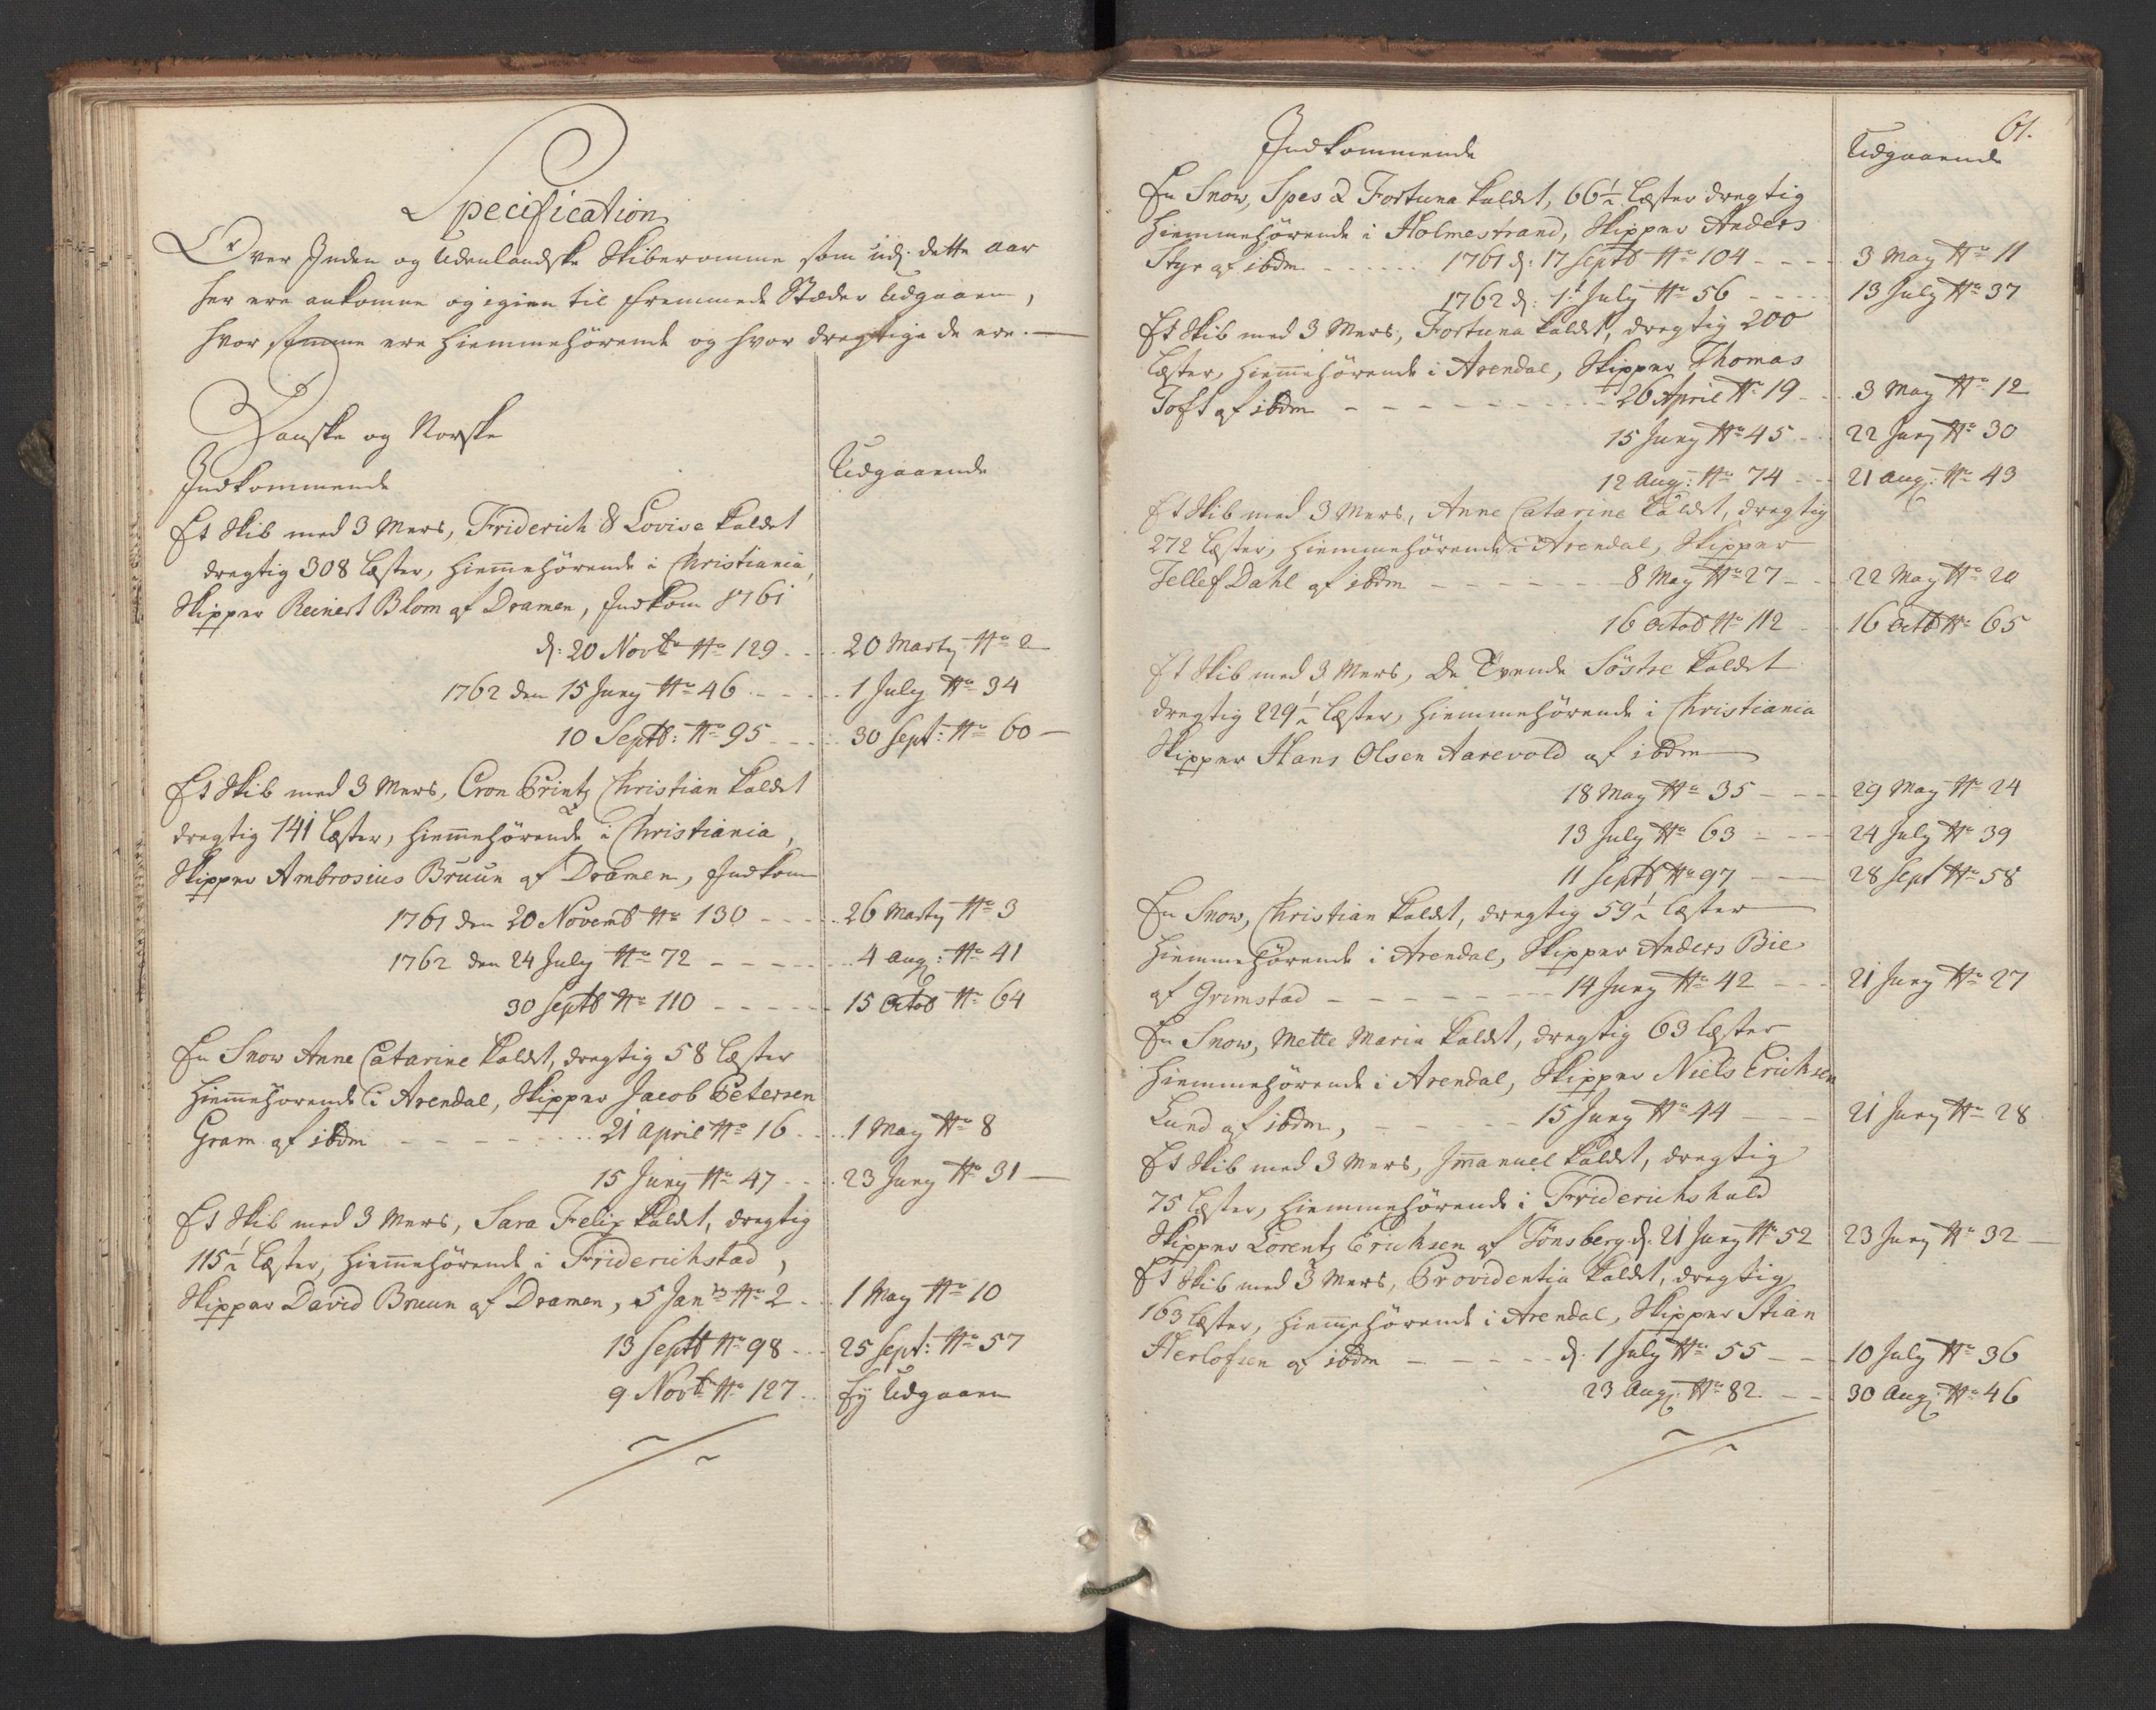 Specification
Over Inden og Udenlandske Skiberomme som udj. dette aar
her ere ankomne og igien til fremmede Stæder Udgaaen,
hvor samme ere Hiemmehörende og hvor drægtige de ere.
Danske og Norske
Indkommende
Udgaaende
Et Skib med 3 Mers, Friderich & Lovise kaldet
drægtig 308 læster, Hiem̅ehörende i Christiania,
Skipper Reinert Blom af Dramen, Indkom 1761
d: 20 Novbr No 129 20 Marty No 2
1762 den 15 Juny No 46 1 July No 34
10 Septb: No 95 30 Sept: No 60
Et Skib med 3 Mers, Cron Printz Christian kaldet
drægtig 141 læster, hiem̅ehörende i Christiania,
Skipper Ambrosius Bruun af Dramen, Indkom
1761 den 20 Novemb No 130 26 Marty No 3
1762 den 24 July No 72 4 Aug: No 41
30 Septb No 110 15 Octob No 64
En Snow Anne Catarine kaldet, drægtig 58 læster
Hiem̅ehörende i Arendal, Skipper Jacob Petersen
Gram af ibdm 21 April No 16 1 May No 8
15 Juny No 47 23 Juny No 31
Et Skib med 3 Mers, Sara Felix kaldet, drægtig
115½ læster, Hiem̅ehörende i Friderichstad,
Skipper David Bruun af Dramen, 5 Janry No 2 1 May No 10
13 Septb No 98 25 Sept: No 57
9 Novbr No 127 Ey Udgaaen
61.
Indkommende
Udgaaende
En Snow, Spes & Fortuna kaldet, 66½ læster drægtig
Hiemmehörende i Holmestrand, Skipper Anders
Styr af ibdm 1761 d: 17 Septb No 104 3 May No 11
1762 d: 1t July No 56 13 July No 37
Et Skib med 3 Mers, Fortuna kaldet, drægtig 200
læster, hiem̅ehörende i Arendal, Skipper Thomas
Toft af ibdm 26 April No 19 3 May No 12
15 Juny No 45 22 Juny No 30
12 Aug: No 74 21 Aug: No 43
Et Skib med 3 Mers, Anne Catarine kaldet, drægtig
272 læster, Hiemmehörende i Arendal, Skipper
Tellef Dahl af ibdm 8 May No 27 22 May No 20
16 Octob No 112 16 Octb No 65
Et Skib med 3 Mers, De Tvende Söstre kaldet
drægtig 229½ læster, Hiemmehörende i Christiania
Skipper Hans Olsen Aarevold af ibdm
18 May No 35 29 May No 24
13 July No 63 24 July No 39
11 Septb No 97 28 Sept No 58
En Snow, Christian kaldet, drægtig 59½ læster
Hiemmehörende i Arendal, Skipper Anders Bie
af Grimstad 14 Juny No 42 21 Juny No 27
En Snow, Mette Maria kaldet, drægtig 63 læster
Hiemmehörende i Arendal, Skipper Niels Erichsen
Lund af ibdm, 15 Juny No 44 21 Juny No 28
Et Skib med 3 Mers, Im̅anuel kaldet, drægtig
75 læster, Hiemmehörende i Friderichshald
Skipper Lorentz Erichsen af Tönsberg d. 21 Juny No 52 23 Juny No 32
Et Skib med 3 Mers, Providentia kaldet, drægtig
163 læster, hiem̅ehörende i Arendal, Skipper Stian
Herlofsen af ibdm d. 1 July No 55 10 July No 36
23 Aug: No 82 30 Aug: No 46